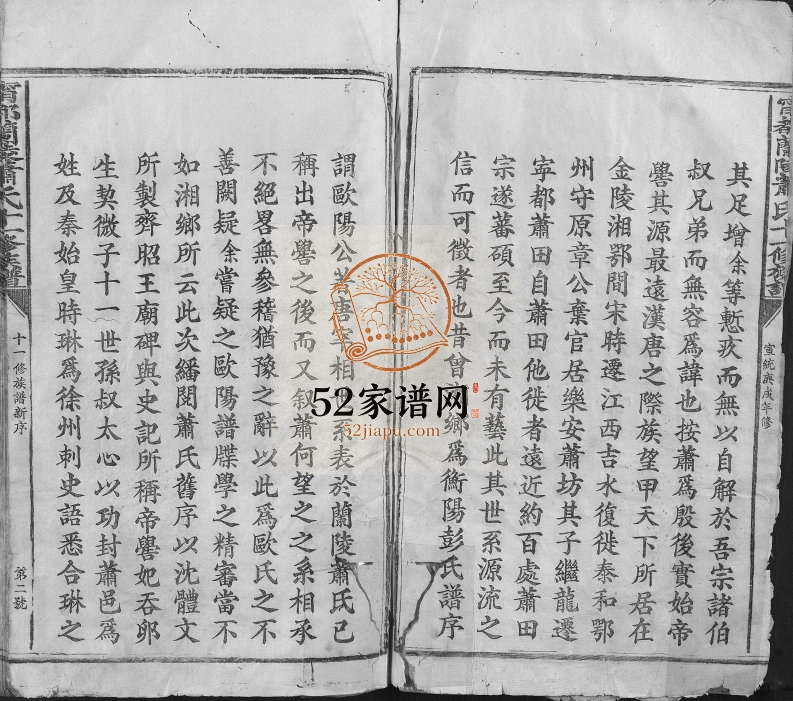 宣統庚戌年修
其足增余等慙疚而無以自解於吾宗諸伯
叔兄弟而無容爲諱也按蕭爲殷後實始帝
嚳其源最遠漢唐之際族望甲天下所居在
金陵湘鄂間宋時遷江西吉水復徙泰和鄂
州守原章公棄官居樂安蕭坊其子繼龍遷
寧都蕭田自蕭田他徙者遠近約百處蕭田
宗遂蕃碩至今而未有藝此其世系源流之
信而可徵者也昔曾 鄉爲衡陽彭氏譜序
謂歐陽公 唐 相 系表於蘭陵蕭氏已
稱出帝嚳之後而又叙蕭何望之之系相承
不絕畧無參稽猶豫之辭以此爲歐氏之不
善闕疑余嘗疑之歐陽譜牒學之精審當不
如湘鄉所云此次繙閱蕭氏舊序以沈體文
所製齊昭王廟碑與史記所稱帝嚳妃吞卵
生契微子十一世孫叔太心以功封蕭邑爲
姓及秦始皇時琳爲徐州刺史語悉合琳之
十一修族譜新序
第二號
52家谱网
52jiapu.com